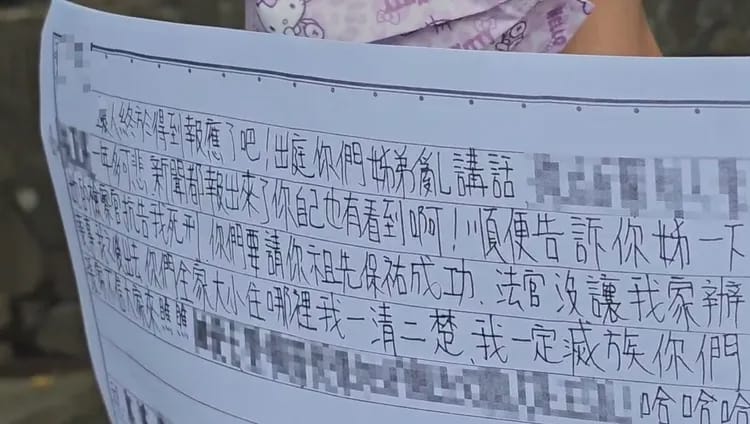 人終於得到報應了吧!出庭你們姊弟亂講話
何悲 新聞都報出來了你自己也有看到啊!順便告訴你姊一下
官抗告我死刑 你們要請你祖先保祐成功、法官沒讓我家辦
出去 你們全家大小住哪裡我一清二楚、我一定滅族你們
不信大家來瞧瞧 哈哈哈